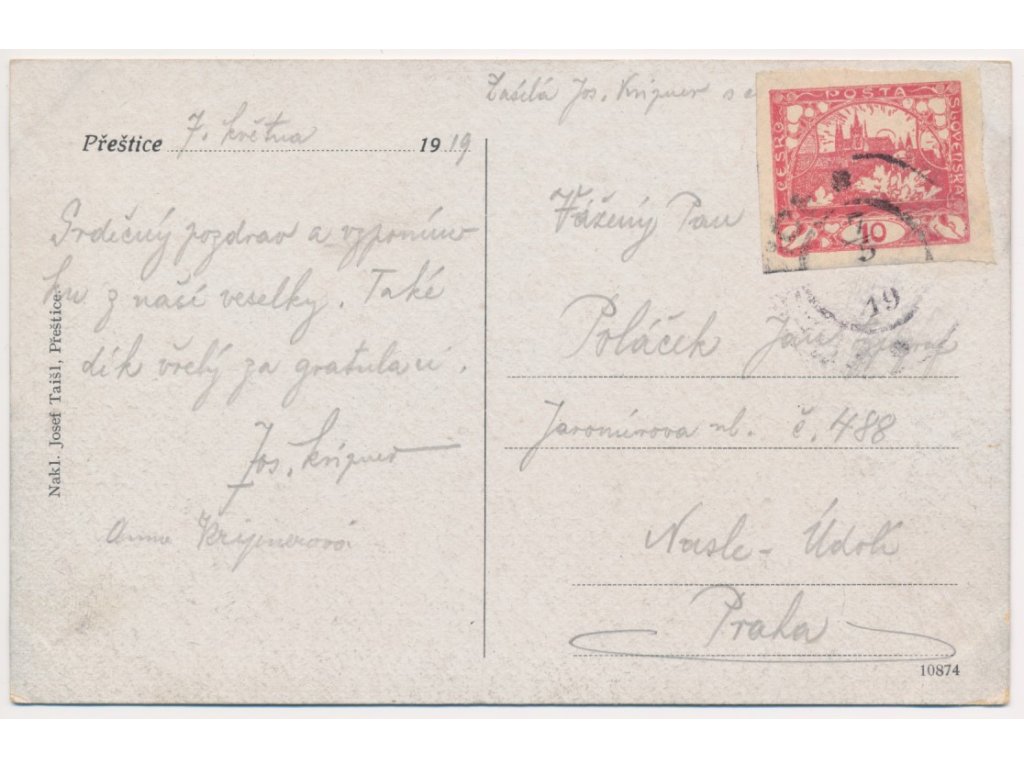 Zasílá Jos. Krizner s
Přeštice 7. května 1919
Srdečný pozdrav a vzpomín
ku z naší veselky. Také
dík vřelý za gratulaci.
Jos. Krizner
Anna Kriznerová
Nakl. Josef Taišl, Přeštice.
POŠTA
ČESKO
SLOVENSKÁ
10
19
Vážený Pan
Poláček Jan
Jaromírova ul. č. 488
Nusle - Údolí
Praha
10874